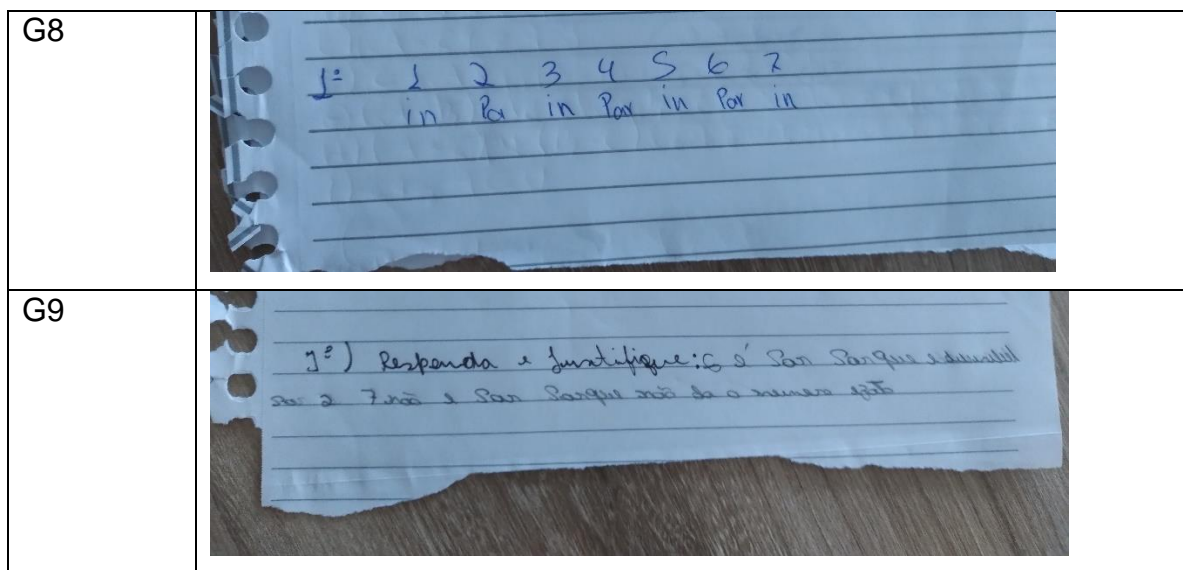 G8
1º 1 2 3 4 5 6 7
in Par in Par in Par in
G9
1º) Responda e Justifique: 6 é Par Parque e divisivel
por 2 7 não e Par Parque não da o numero exato